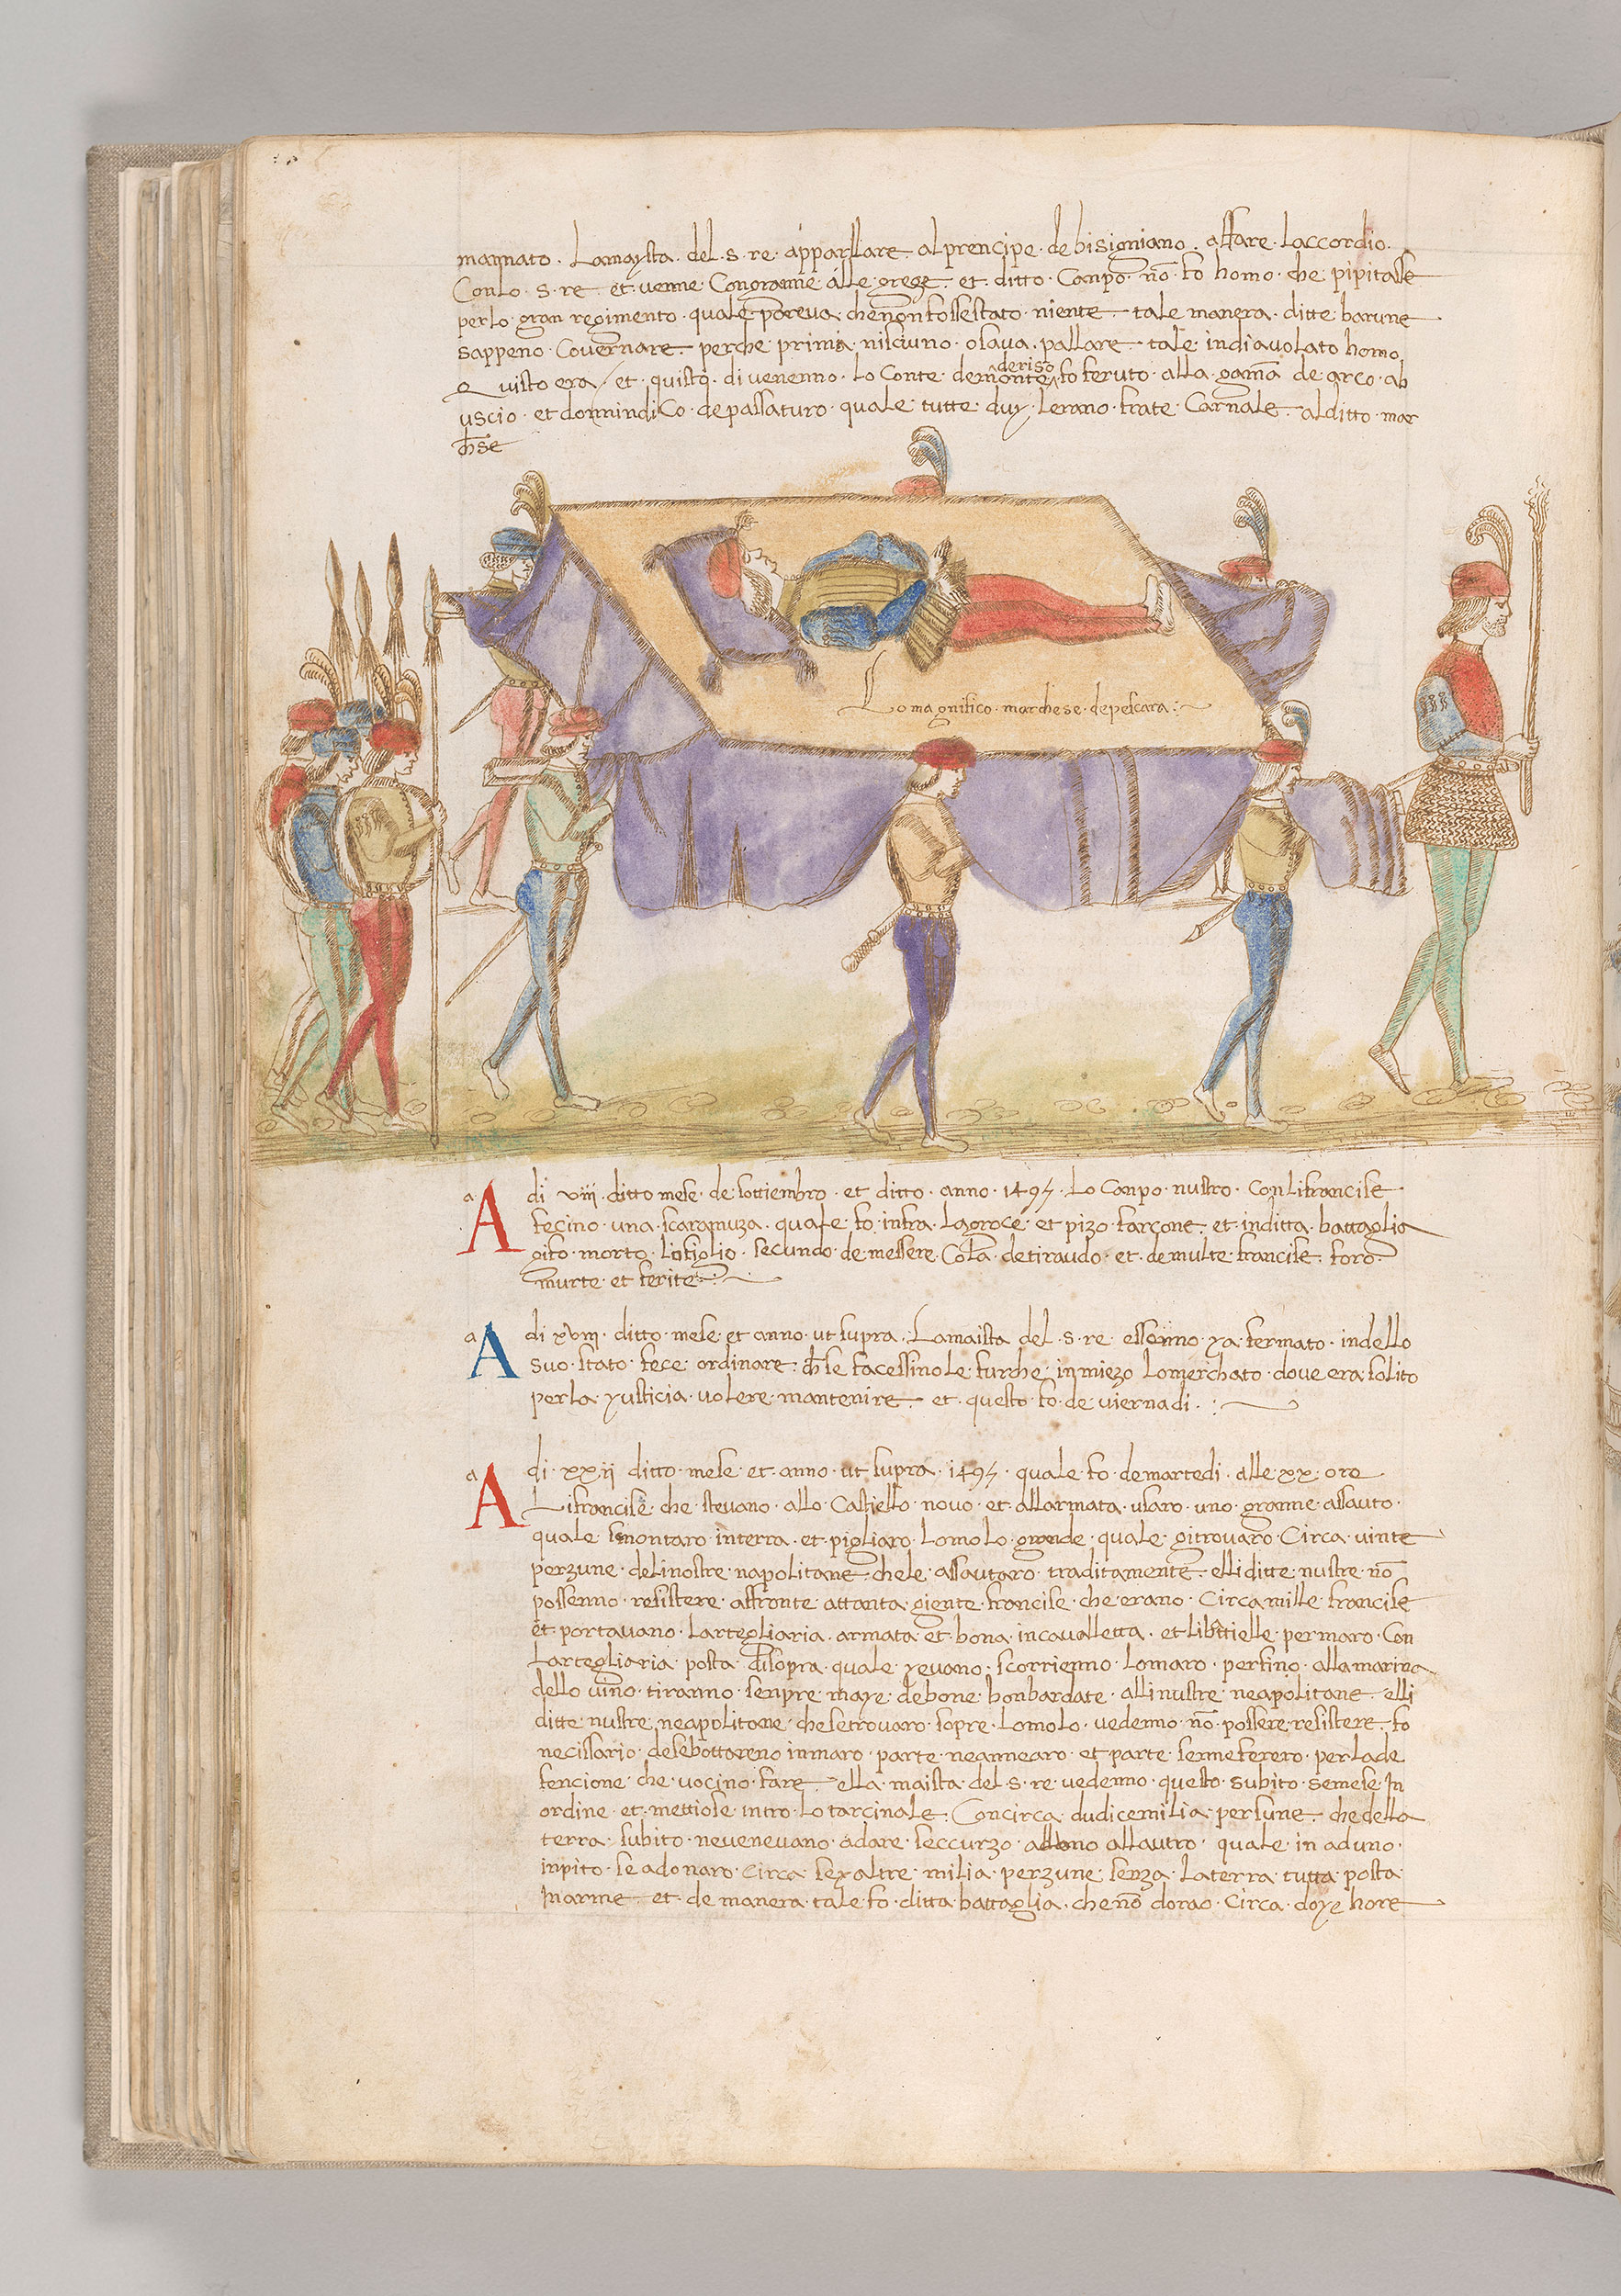 mannato · Lamaysta · del · s · re · apparllare · alprencipe · de bisigniano · affare · Laccordio ·
Conlo · s · re · et · uenne Congranne alle grege · et · ditto · Canpo · nō · fo homo · che pipitasse
perlo · gran regimento · quale pareua · chenonfossestato · niente · tale manera · ditte barune
sappeno · Couernare · perche prima · nisciuno · osaua · pallare · tale indiauolato homo
Quisto era / et · quisto · di uenenno · Lo Conte · demonte deriso fo feruto · alla · gamā de arco · ab
uscio · et donnindico · depassaturo · quale · tutte · duy · Lerano · frate · Carnale · alditto · mar
chese
Lo magnifico · marchese · depescara :~
a A di viii · ditto mese · de sottiembro · et ditto · anno · 1495 · Lo Canpo · nustro · Conlifrancise
fecino · una · scaramuza · quale · fo · infra · Lagroce · et pizo · farçone · et · inditta · battaglia
gifo · morto · Lofiglio · secundo · de messere · Cola · detiraudo · et · de multe · francise · foro
murte · et ferite :~
a A di xviii · ditto · mese · et · anno · ut supra · Lamaista del · s · re essenno · ya · fermato · indello
suo · stato · fece · ordinare · che se facessino Le furche · in miezo Lomerchato · dove era solito
perla · yusticia · volere · mantenire · et · questo · fo · de viernadi · :~
a A di · xxii ditto · mese · et · anno · ut supra · 1495 · quale · fo · demartedi · alle xx · ore
Lifrancise · che · stevano · allo · Castiello · novo · et · allarmata · usaro · uno · granne · assauto ·
quale · smontaro · interra · et · pigliaro · Lomolo · grande · quale · gitrovaro · Circa · vinte
perzune · delinostre · napolitane · chele · assautaro · traditamente · elliditte · nustre · nō
possenno · resistere · affronte · attanta · giente · francise · che · erano · Circamille · francise
et · portavano · Lartegliaria · armata · et · bona · incavalletta · et libattielle · permaro · Con
Lartegliaria · posta · disopra · quale · yevano · scorrienno · Lomaro · perfino · alla marina
dello vino · tiranno · senpre · maye · debone · bonbardate · allinustre · neapolitane · elli
ditte · nustre · neapolitane · chesetrovaro · sopre · Lomolo · vedenno · nō · possere · resistere · fo
necissario · desebottareno inmaro · parte · neannearo · et parte · senneferero · perlade
fencione · che · vocino · fare · ella · maista · del · s · re vedenno · questo · subito · semese · In
ordine · et · mettiose · intro · Lo tarcinale · Concirca · dudicemilia · persune · chedella
terra · subito · nevenevano · adare · seccurzo · alluno allautro · quale · in aduno ·
inpito · se adonaro · circa · sey altre · milia · perzune · senza · Laterra · tutta · posta
Inarme · et · de manera · tale · fo · ditta battaglia · che nō dorao · Circa · doye hore